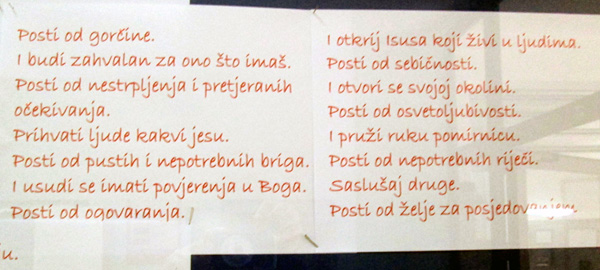 Posti od gorčine.
I budi zahvalan za ono što imaš.
Posti od nestrpljenja i pretjeranih
očekivanja.
Prihvati ljude kakvi jesu.
Posti od pustih i nepotrebnih briga.
I usudi se imati povjerenja u Boga.
Posti od ogovaranja.
I otkrij Isusa koji živi u ljudima.
Posti od sebičnosti.
I otvori se svojoj okolini.
Posti od osvetoljubivosti.
I pruži ruku pomirnicu.
Posti od nepotrebnih riječi.
Saslušaj druge.
Posti od želje za posjedovanjem.